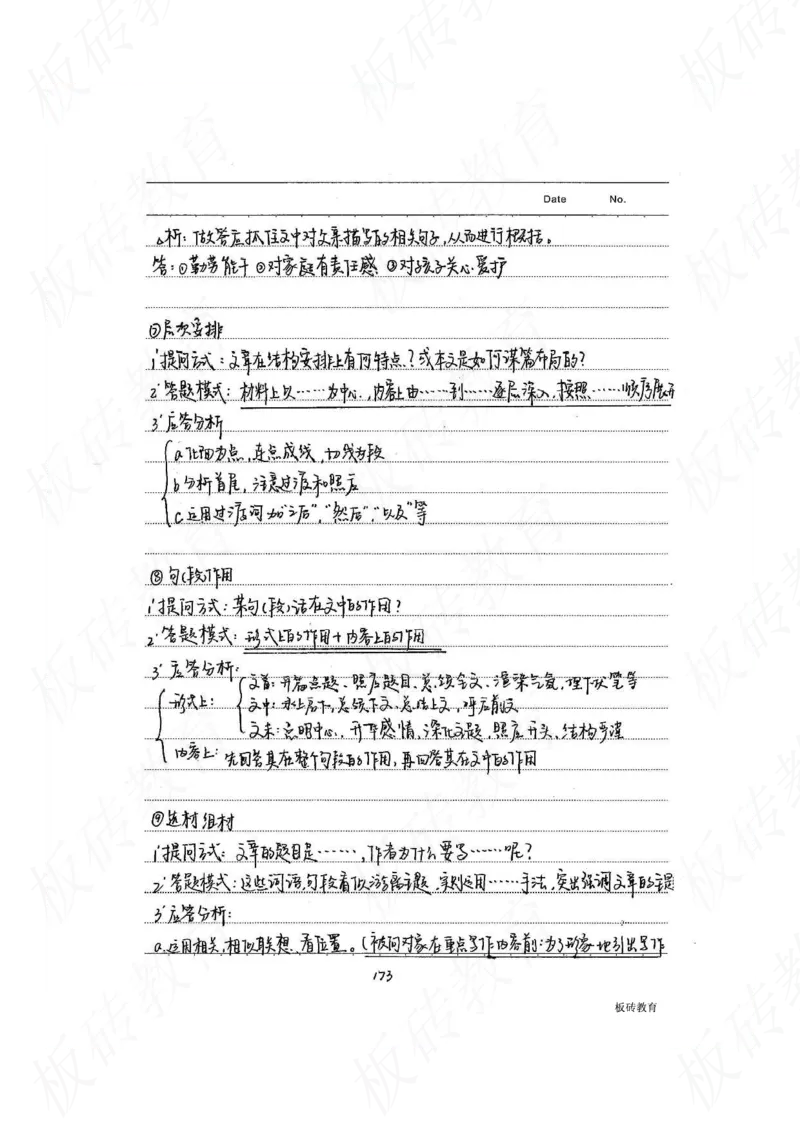 Date No.
△析：做答应抓住文中对父亲描写的相关句子，从而进行概括。
答：①勤劳能干 ②对家庭有责任感 ③对孩子关心、爱护
⑦层次安排
1'提问方式：文章在结构安排上有何特点？或本文是如何谋篇布局的？
2'答题模式：材料上以……为中心，内容上由……到……逐层深入，按照……顺序展开
3'应答分析
a 化面为点，连点成线，切线为段
b 分析首尾，注意过渡和照应
c 运用过渡词如"之后"，"然后"，"以及"等
⑧句(段)作用
1'提问方式：某句(段)话在文中的作用？
2'答题模式：形式上的作用+内容上的作用
3'应答分析：
文首：开篇点题、照应题目、总领全文、渲染气氛，埋下伏笔等
形式上： 文中：承上启下，总领下文、总结上文，呼应前文
文末：点明中心，升华感情，深化文题，照应开头、结构严谨
内容上：先回答其在整个句段的作用，再回答其在文中的作用
⑨选材组材
1'提问方式：文章的题目是……，作者为什么要写……呢？
2'答题模式：这些词语，句段看似游离主题，实则运用……手法，突出强调文章的主题
3'应答分析：
a.运用相关，相似联想，看位置。(被问对象在重点写作内容前：为了形象地引出写作
173
板砖教育
板砖教育